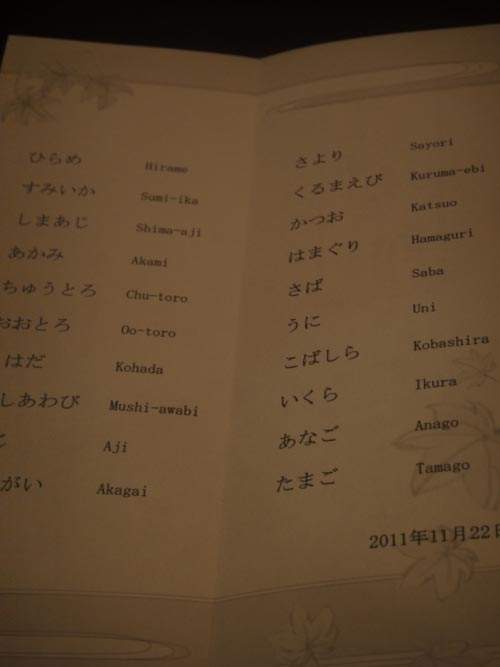 ひらめ Hirame
すみいか Sumi-ika
しまあじ Shima-aji
あかみ Akami
ちゅうとろ Chu-toro
おおとろ Oo-toro
はだ Kohada
しあわび Mushi-awabi
じ Aji
がい Akagai
さより Sayori
くるまえび Kuruma-ebi
かつお Katsuo
はまぐり Hamaguri
さば Saba
うに Uni
こばしら Kobashira
いくら Ikura
あなご Anago
たまご Tamago
2011年11月22日